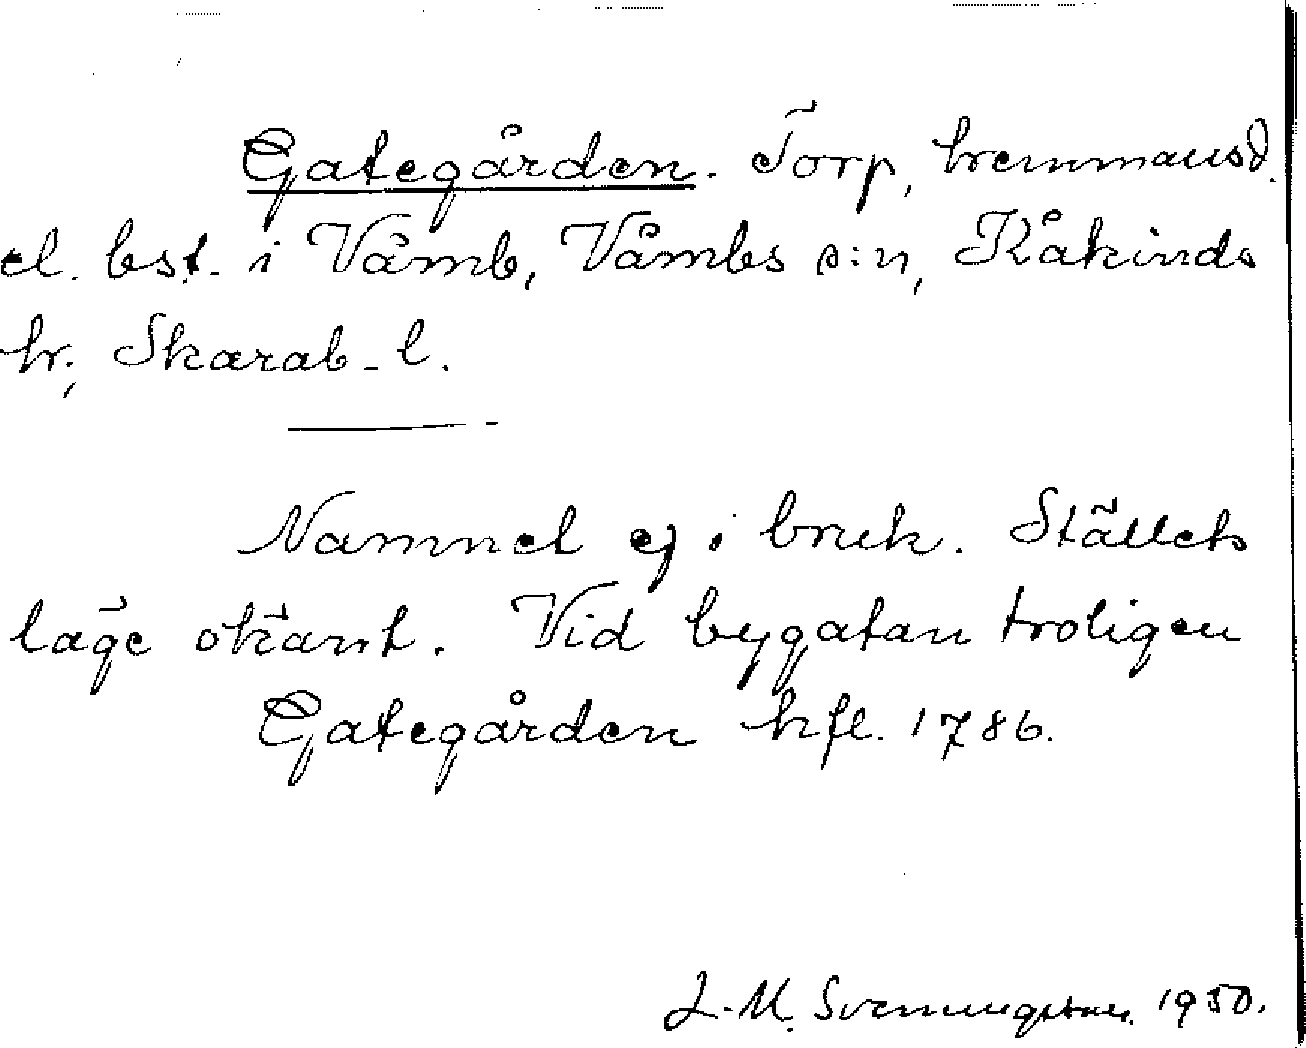 Gategården. Torp, hemmansd.
el. bst. i Våmb, Våmbs s:n, Kåkinds
hr, Skarab. l.
Namnet ej i bruk. Ställets
läge okänt. Vid bygatan troligen
Gategården hfl. 1786.
L.M. Svenungsson 1950.